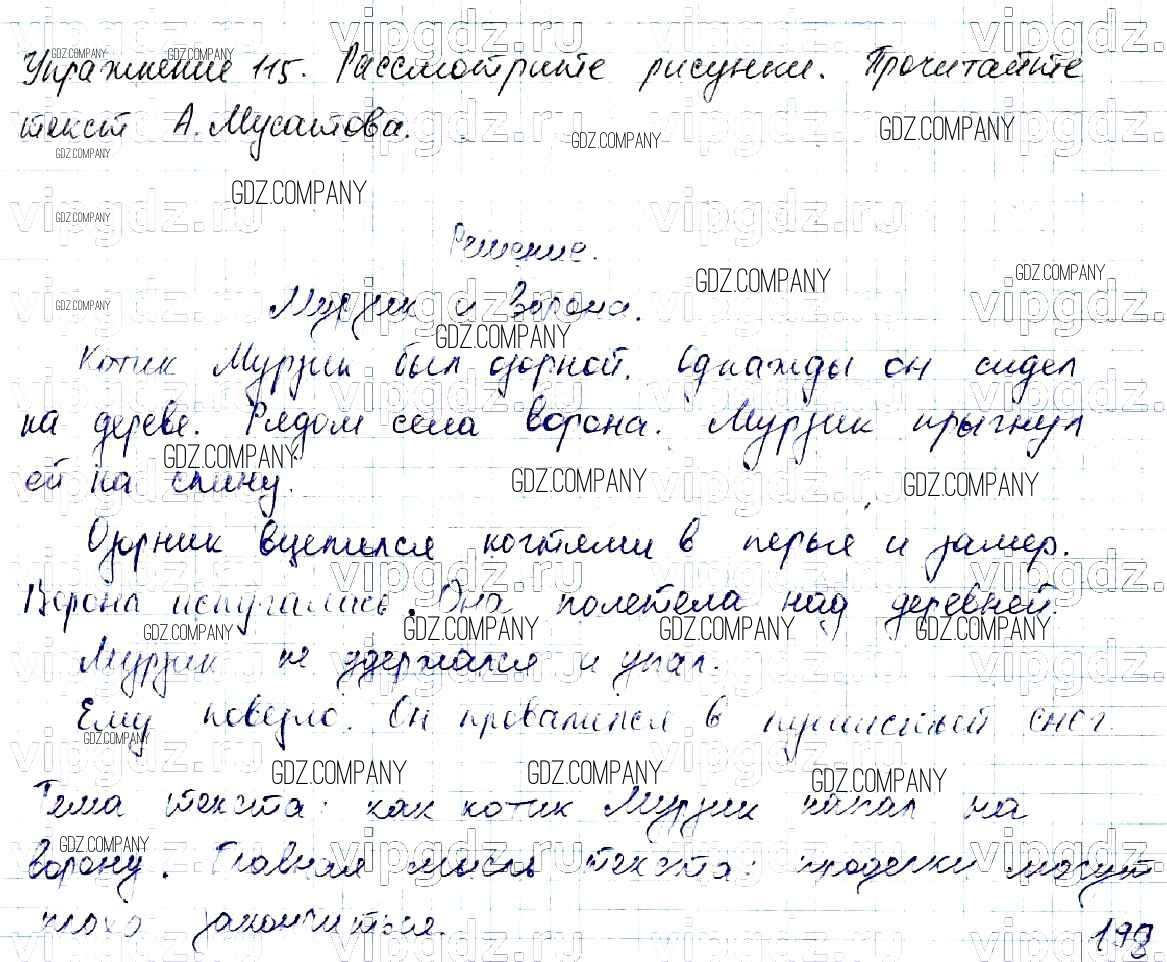 Упражнение 115. Рассмотрите рисунки. Прочитайте
текст А. Мусатова.
Решение.
Мурзик и Ворона.
Котик Мурзик был озорной. Однажды он сидел
на дереве. Рядом села ворона. Мурзик прыгнул
ей на спину.
Озорник вцепился когтями в перья и замер.
Ворона испугалась. Она полетела над деревней.
Мурзик не удержался и упал.
Ему повезло. Он провалился в пушистый снег.
Тема текста: как котик Мурзик напал на
ворону. Главная мысль текста: проделки могут
плохо закончиться.
198
GDZ.COMPANY
vipgdz.ru